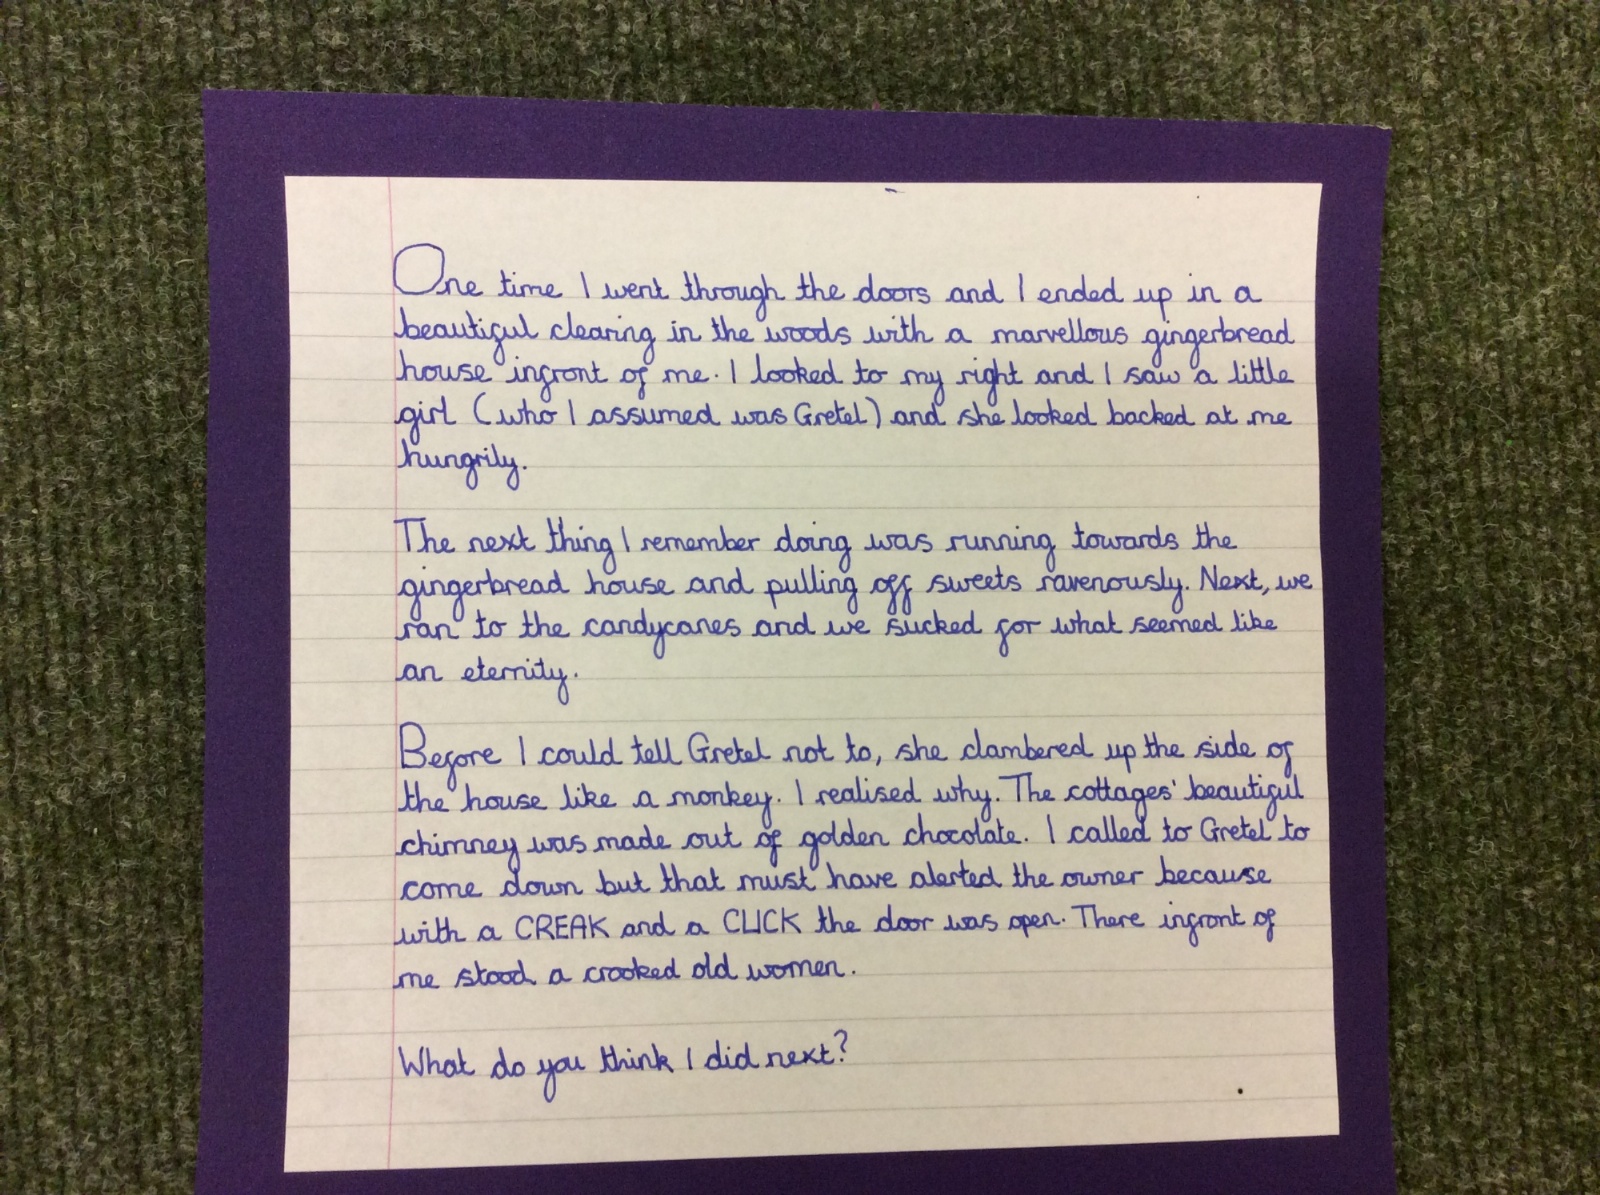 One time I went through the doors and I ended up in a
beautiful clearing in the woods with a marvellous gingerbread
house infront of me. I looked to my right and I saw a little
girl (who I assumed was Gretel) and she looked backed at me
hungrily.
The next thing I remember doing was running towards the
gingerbread house and pulling off sweets ravenously. Next, we
ran to the candycanes and we sucked for what seemed like
an eternity.
Before I could tell Gretel not to, she clambered up the side of
the house like a monkey. I realised why. The cottages' beautiful
chimney was made out of golden chocolate. I called to Gretel to
come down but that must have alerted the owner because
with a CREAK and a CLICK the door was open. There infront of
me stood a crooked old women.
What do you think I did next?